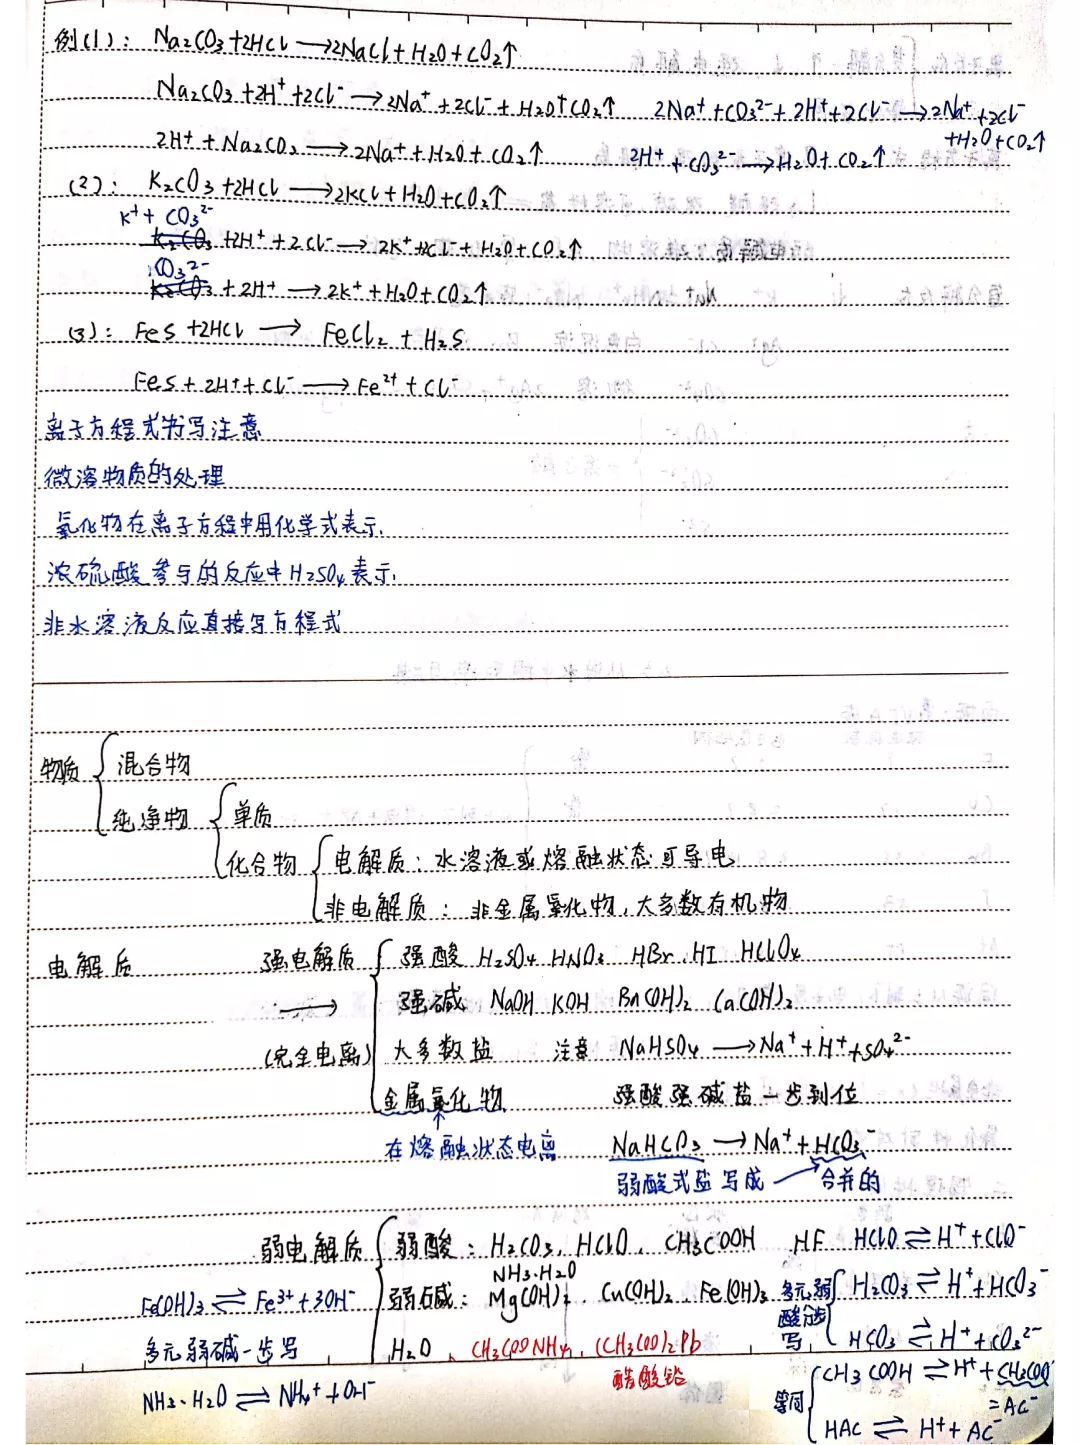 例(1): Na₂CO₃+2HCl⟶2NaCl+H₂O+CO₂↑
Na₂CO₃+2H⁺+2Cl⁻⟶2Na⁺+2Cl⁻+H₂O+CO₂↑ 2Na⁺+CO₃²⁻+2H⁺+2Cl⁻⟶2Na⁺+2Cl⁻
+H₂O+CO₂↑
2H⁺+Na₂CO₃⟶2Na⁺+H₂O+CO₂↑ 2H⁺+CO₃²⁻⟶H₂O+CO₂↑
(2): K₂CO₃+2HCl⟶2KCl+H₂O+CO₂↑
K⁺+CO₃²⁻
K₂CO₃+2H⁺+2Cl⁻⟶2K⁺+2Cl⁻+H₂O+CO₂↑
CO₃²⁻
K₂CO₃+2H⁺⟶2K⁺+H₂O+CO₂↑
(3): FeS+2HCl⟶FeCl₂+H₂S
FeS+2H⁺+Cl⁻⟶Fe²⁺+Cl⁻
离子方程式书写注意
微溶物质的处理
氧化物在离子方程中用化学式表示.
浓硫酸参与的反应中H₂SO₄表示.
非水溶液反应直接写方程式
物质 混合物
纯净物 单质
化合物 电解质: 水溶液或熔融状态可导电
非电解质: 非金属氧化物,大多数有机物
电解质 强电解质 强酸 H₂SO₄ HNO₃ HBr.HI HClO₄
⟶ 强碱 NaOH KOH Ba(OH)₂ Ca(OH)₂
(完全电离) 大多数盐 注意 NaHSO₄⟶Na⁺+H⁺+SO₄²⁻
金属氧化物 强酸强碱盐一步到位
在熔融状态电离 NaHCO₃⟶Na⁺+HCO₃⁻
弱酸式盐写成⟶合并的
弱电解质 弱酸: H₂CO₃、HClO、CH₃COOH HF HClO⇌H⁺+ClO⁻
NH₃·H₂O
Fe(OH)₃⇌Fe³⁺+3OH⁻ 弱碱: Mg(OH)₂、Cu(OH)₂、Fe(OH)₃ 多元弱酸分步写 H₂CO₃⇌H⁺+HCO₃⁻
多元弱碱一步写 H₂O、CH₃COONH₄、(CH₃COO)₂Pb HCO₃⇌H⁺+CO₃²⁻
醋酸铅
NH₃·H₂O⇌NH₄⁺+OH⁻ 等同 CH₃COOH⇌H⁺+CH₃COO⁻
=Ac⁻
HAc⇌H⁺+Ac⁻